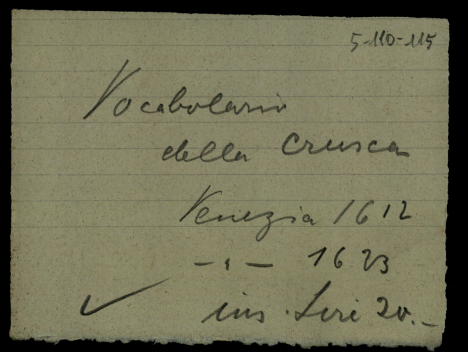 5-110-115
Vocabolario
della Crusca
Venezia 1612
—〃— 1623
ins. Lire 20.—